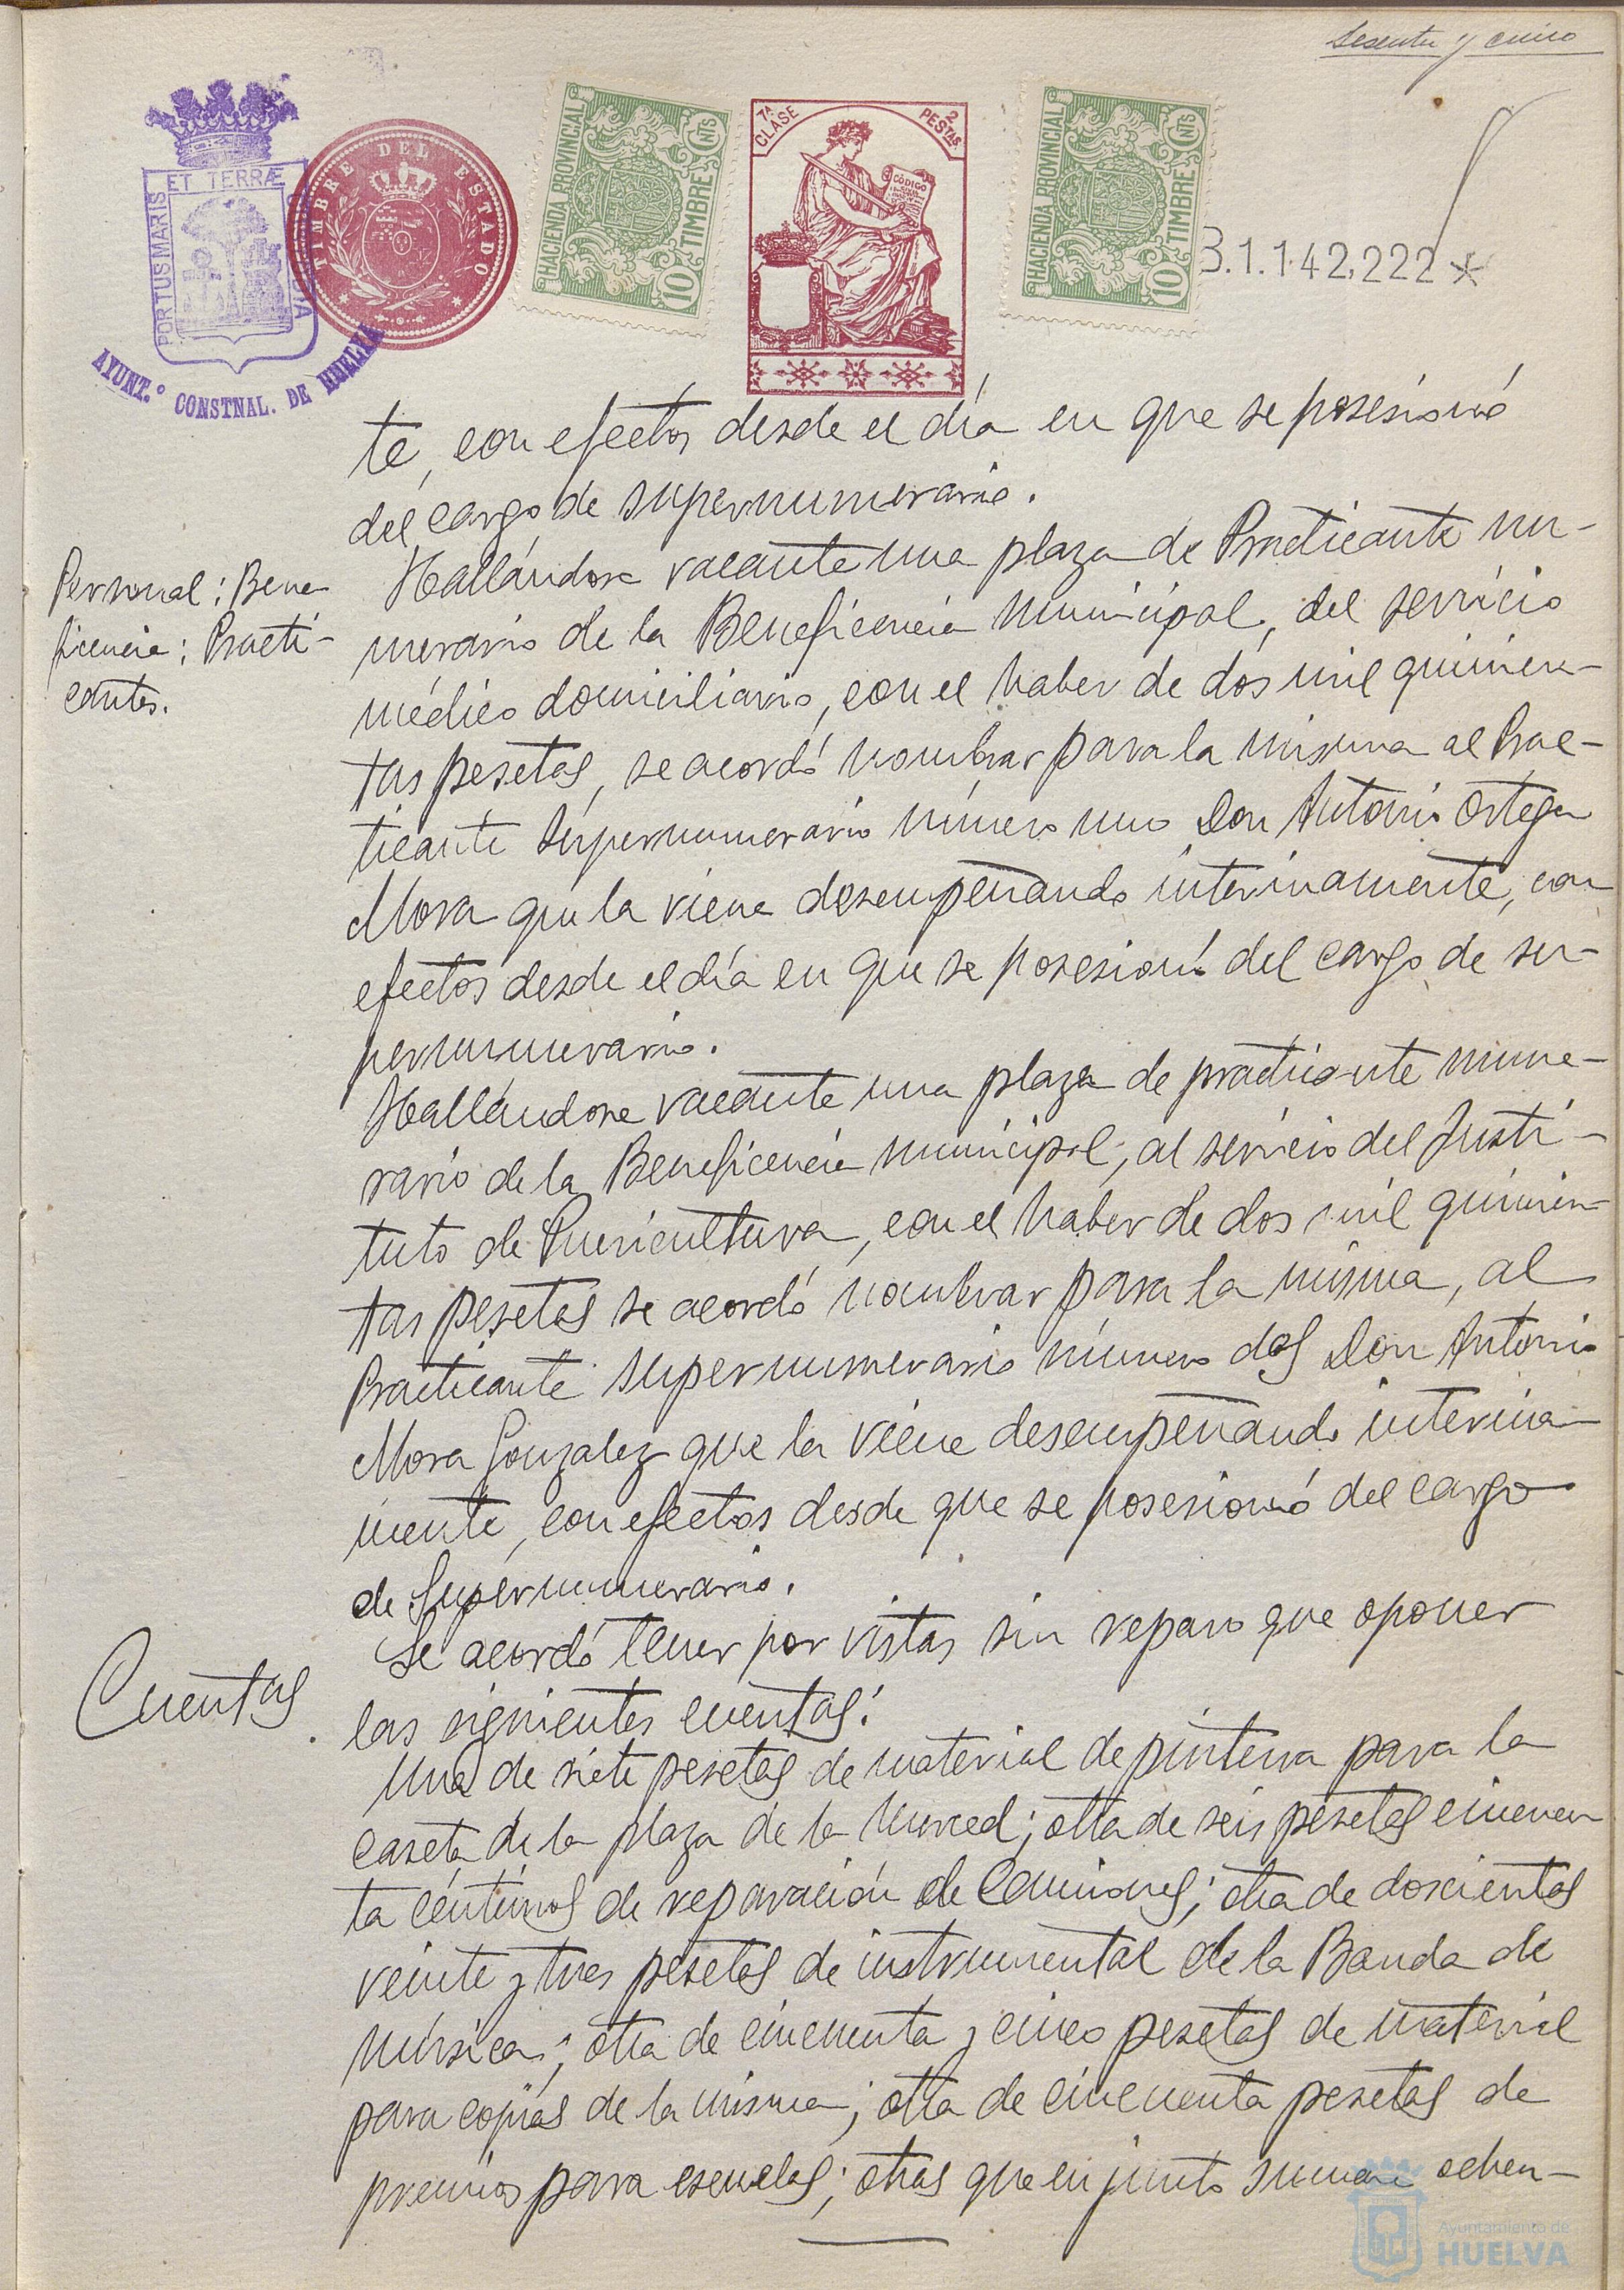 sesenta y cinco
ET TERRÆ
PORTUS MARIS
CUSTODIA
AYUNT.º CONSTNAL. DE HUELVA
TIMBRE DEL ESTADO
HACIENDA PROVINCIAL
10 TIMBRE CNTS
7ª CLASE
2 PESTAS.
CÓDIGO
HACIENDA PROVINCIAL
10 TIMBRE CNTS
B.1.142,222 *
te, con efectos desde el día en que se posesionó
del cargo de supernumerario.
Personal: Bene
ficencia: Practi-
cantes.
Hallándose vacante una plaza de Practicante nu-
merario de la Beneficencia Municipal, del servicio
médico domiciliario, con el haber de dos mil quinien-
tas pesetas, se acordó nombrar para la misma al Prac-
ticante Supernumerario número uno Don Antonio Ortega
Mora que la viene desempeñando interinamente, con
efectos desde el día en que se posesionó del cargo de su-
pernumerario.
Hallándose vacante una plaza de practicante nume-
rario de la Beneficencia Municipal, al servicio del Insti-
tuto de Puericultura, con el haber de dos mil quinien-
tas pesetas se acordó nombrar para la misma, al
Practicante supernumerario número dos Don Antonio
Mora Gonzalez que la viene desempeñando interina-
mente, con efectos desde que se posesionó del cargo
de Supernumerario.
Cuentas.
Se acordó tener por vistas sin reparo que oponer
las siguientes cuentas:
Una de siete pesetas de material de pintura para la
caseta de la plaza de la Merced; otra de seis pesetas cincuen
ta céntimos de reparación de Camiones; otra de doscientas
veinte y tres pesetas de instrumental de la Banda de
Música; otra de cincuenta y cinco pesetas de material
para copias de la misma; otra de cincuenta pesetas de
premios para escuelas; otras que en junto suman ochen-
Ayuntamiento de
HUELVA